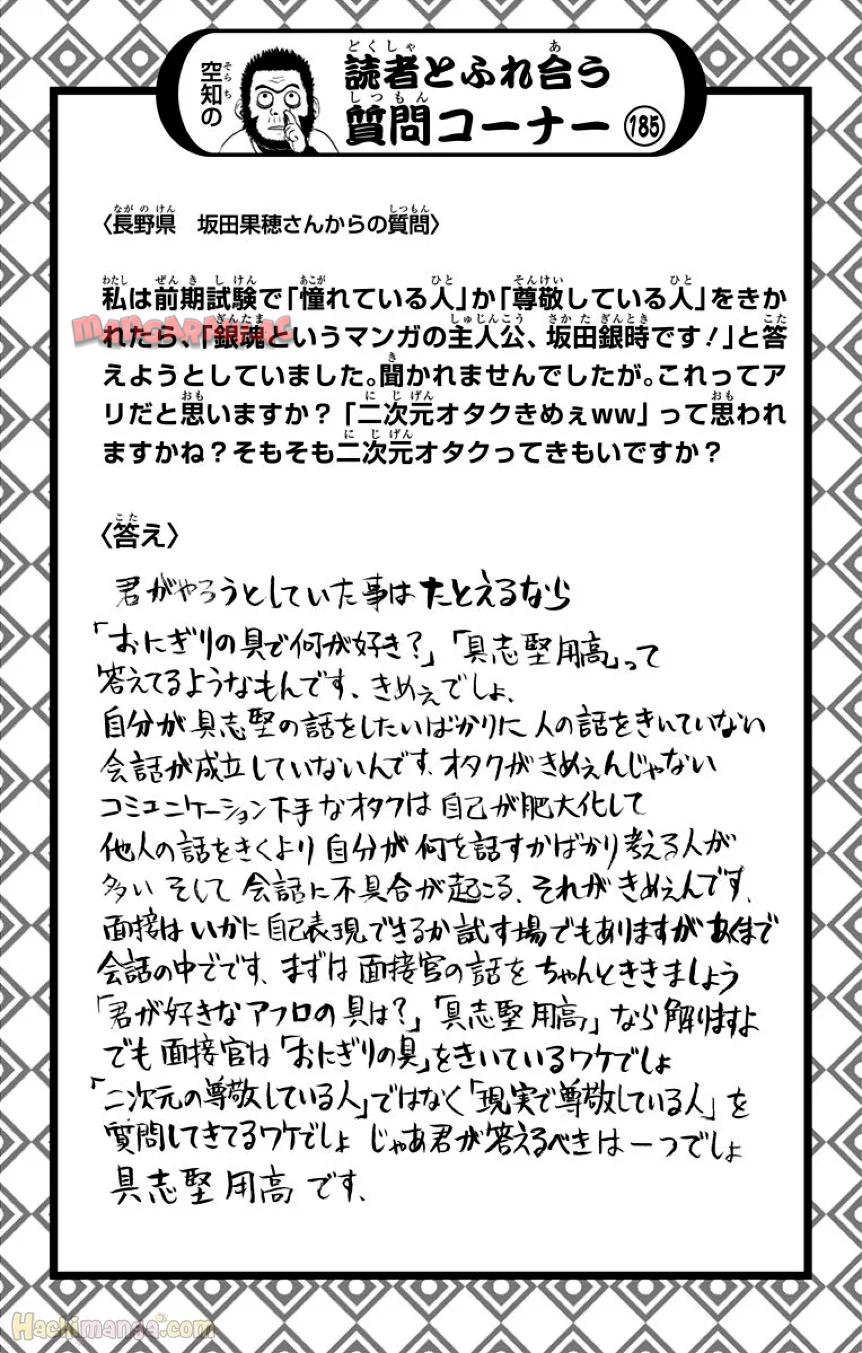 空知の
読者とふれ合う
質問コーナー 185
〈長野県 坂田果穂さんからの質問〉
私は前期試験で「憧れている人」か「尊敬している人」をきか
れたら、「銀魂というマンガの主人公、坂田銀時です!」と答
えようとしていました。聞かれませんでしたが。これってア
リだと思いますか?「二次元オタクきめぇww」って思われ
ますかね?そもそも二次元オタクってきもいですか?
〈答え〉
君がやろうとしていた事はたとえるなら
「おにぎりの具で何が好き?」「具志堅用高」って
答えてるようなもんです、きめぇでしょ、
自分が具志堅の話をしたいばかりに人の話をきいていない
会話が成立していないんです、オタクがきめぇんじゃない
コミュニケーション下手なオタクは自己が肥大化して
他人の話をきくより自分が何を話すかばかり考える人が
多いそして会話に不具合が起こる、それがきめぇんです、
面接はいかに自己表現できるか試す場でもありますがあくまで
会話の中でです、まずは面接官の話をちゃんとききましょう
「君が好きなアフロの具は?」「具志堅用高」なら解りますよ
でも面接官は「おにぎりの具」をきいているワケでしょ
「二次元の尊敬している人」ではなく「現実で尊敬している人」を
質問してきてるワケでしょ じゃあ君が答えるべきは一つでしょ
具志堅用高です、
Hachimanga.com